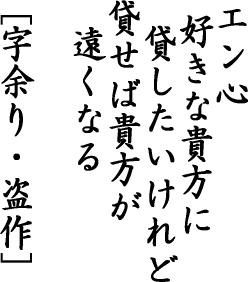 エン心
好きな貴方に
貸したいけれど
貸せば貴方が
遠くなる
[字余り・盗作]